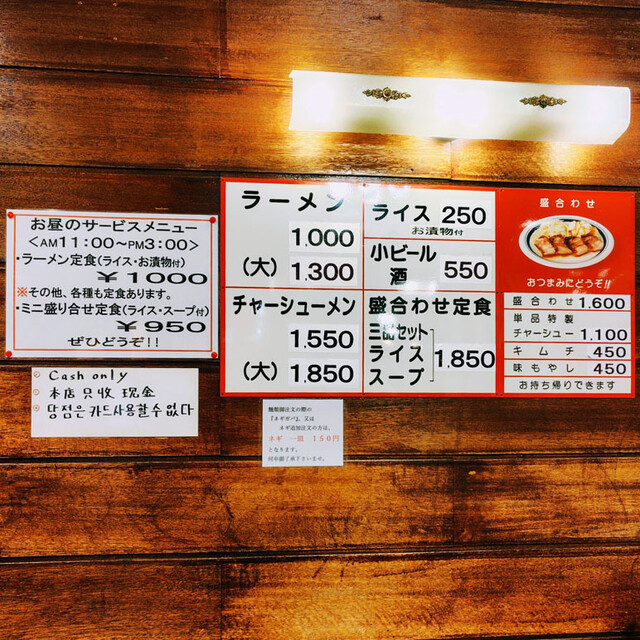 お昼のサービスメニュー
<AM11:00〜PM3:00>
・ラーメン定食(ライス・お漬物付)
¥1000
※その他、各種も定食あります。
・ミニ盛り合せ定食(ライス・スープ付)
¥950
ぜひどうぞ!!
Cash only
本店只收现金
당점은 카드사용할수없다
ラーメン
1.000
(大) 1.300
チャーシューメン
1.550
(大) 1.850
ライス 250
お漬物付
小ビール
酒 550
盛合わせ定食
三品セット
ライス
スープ 1.850
麺類御注文の際の
『ネギガバ』、又は
ネギ追加注文の方は、
ネギ 一皿 150円
となります。
何卒御了承下さいませ。
盛合わせ
おつまみにどうぞ!!
盛合わせ 1.600
単品特製
チャーシュー 1,100
キムチ 450
味もやし 450
お持ち帰りできます